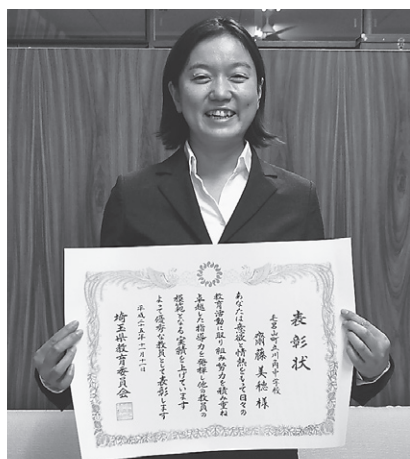 表彰状
毛呂山町立川角中学校
齋藤美穂様
あなたは意欲と情熱をもって日々の
教育活動に取り組み努力を積み重ね
卓越した指導力を発揮し他の教員の
模範となる実績を上げています
よって優秀な教員として表彰します
平成二十五年十一月十一日
埼玉県教育委員会